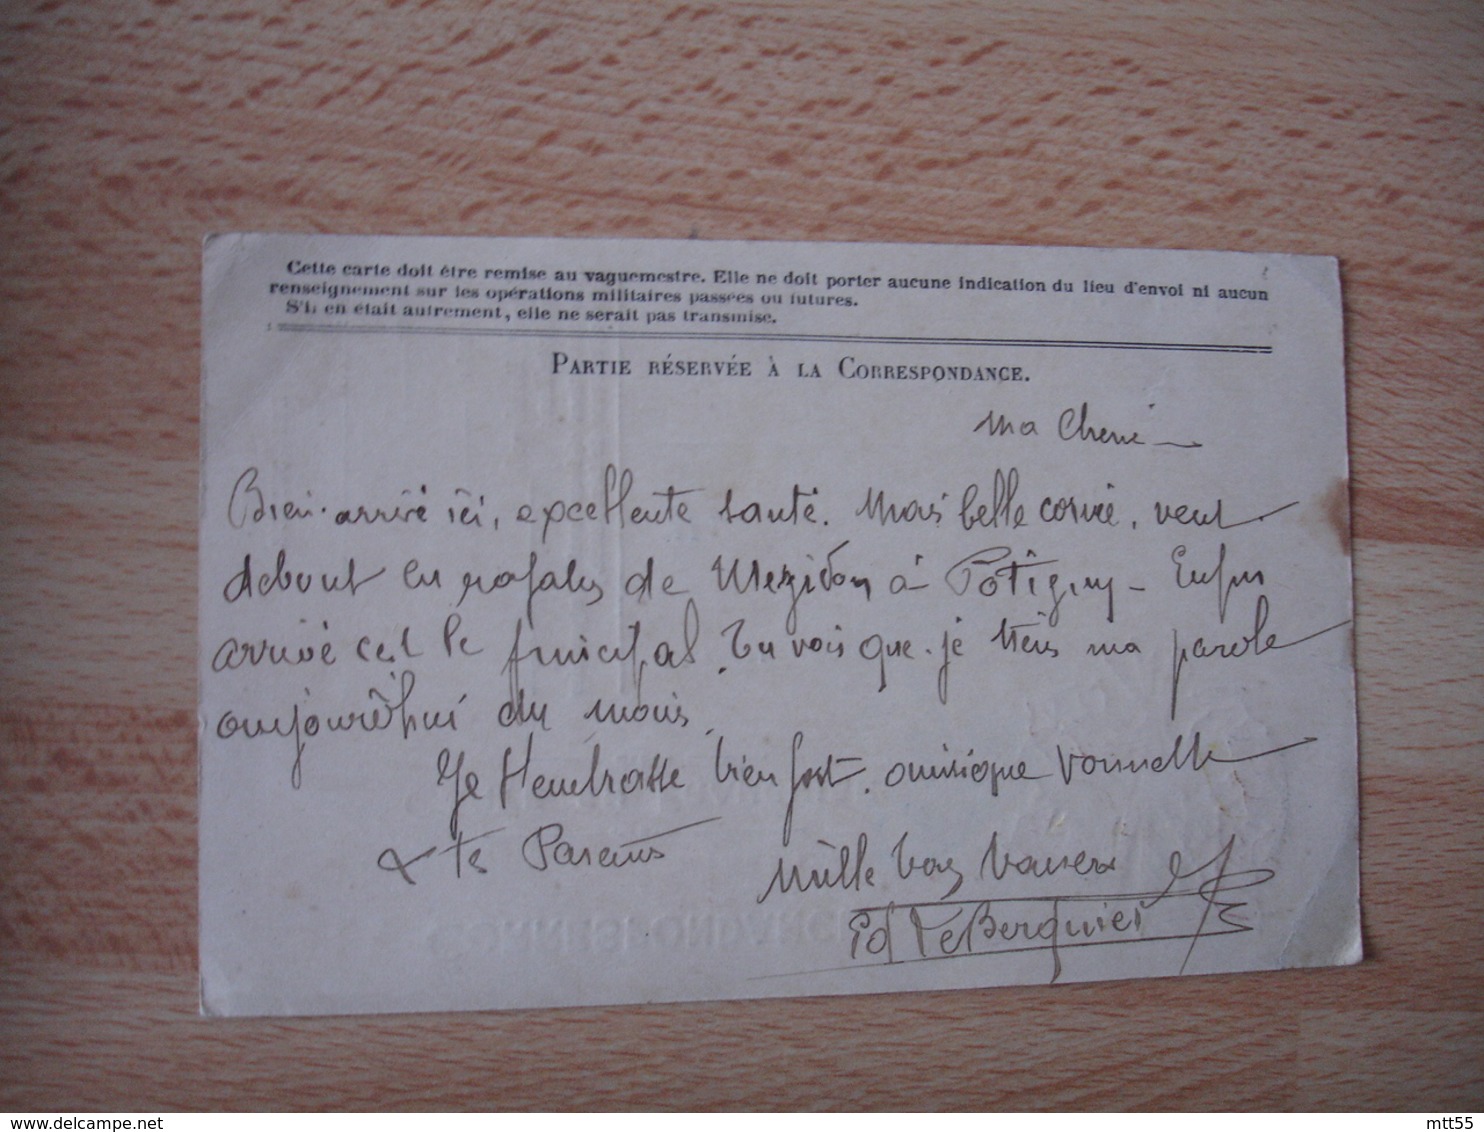 Cette carte doit être remise au vaguemestre. Elle ne doit porter aucune indication du lieu d'envoi ni aucun
renseignement sur les opérations militaires passées ou futures.
S'il en était autrement, elle ne serait pas transmise.
PARTIE RÉSERVÉE À LA CORRESPONDANCE.
Ma Cherie
Bien arrivé ici, excellente santé. Mais belle corvée, vent
debout en rafales de Mezidon à Potigny - Enfin
arrivé c'est le principal. Tu vois que je tiens ma parole
aujourd'hui du moins.
Je t'embrasse bien fort. ainsi que
& tes Parents
Mille bons baisers
Ed LeBerquier
delcampe.net
mtt55